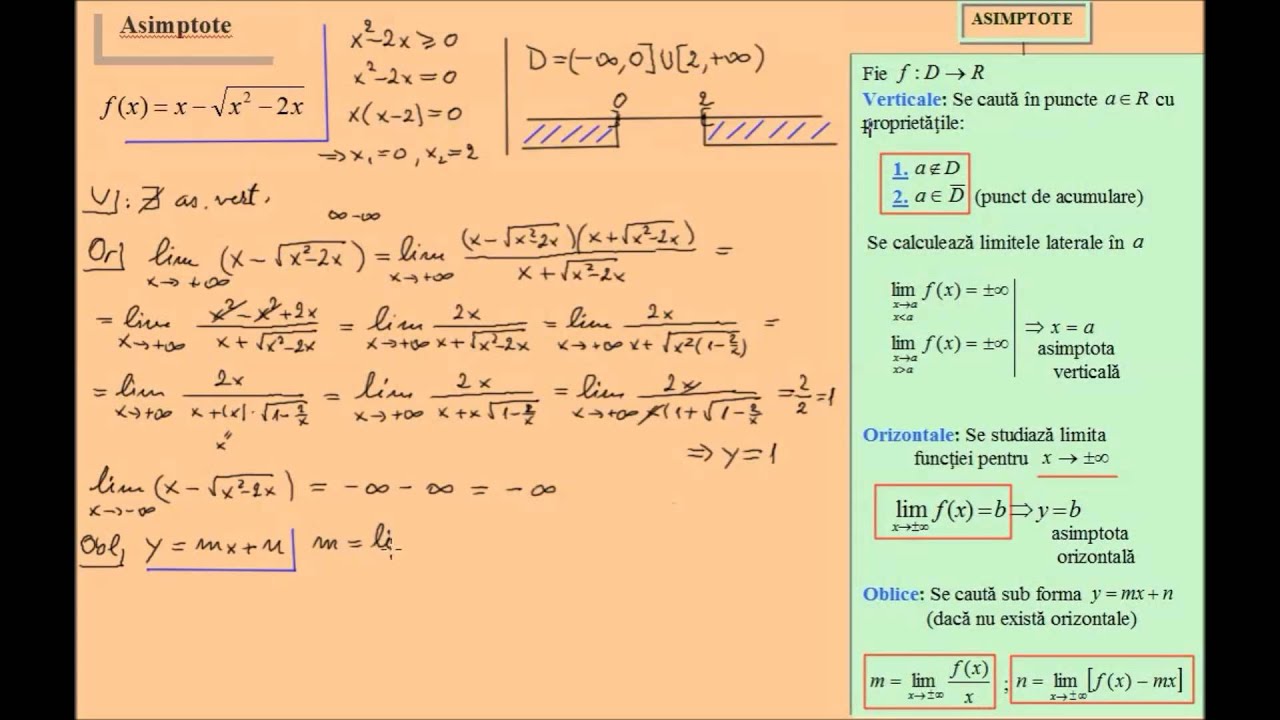 Asimptote
f(x) = x − √(x² − 2x)
x²−2x ⩾ 0
x²−2x = 0
x(x−2) = 0
⇒ x₁=0, x₂=2
D = (−∞, 0] ∪ [2, +∞)
0 2
V): ∄ as. vert.
∞−∞
Or) lim x→+∞ (x − √(x²−2x)) = lim x→+∞ (x−√(x²−2x))(x+√(x²−2x)) / (x+√(x²−2x)) =
= lim x→+∞ (x²−x²+2x) / (x+√(x²−2x)) = lim x→+∞ 2x / (x+√(x²−2x)) = lim x→+∞ 2x / (x+√(x²(1−2/x))) =
= lim x→+∞ 2x / (x+|x|·√(1−2/x)) = lim x→+∞ 2x / (x+x√(1−2/x)) = lim x→+∞ 2x / (x(1+√(1−2/x))) = 2/2 = 1
x
⇒ y = 1
lim x→−∞ (x − √(x²−2x)) = −∞ − ∞ = −∞
Obl, y = mx+n m = li
ASIMPTOTE
Fie f : D → R
Verticale: Se caută în puncte a ∈ R cu
proprietățile:
1. a ∉ D
2. a ∈ D̅ (punct de acumulare)
Se calculează limitele laterale în a
lim x→a x<a f(x) = ±∞
lim x→a x>a f(x) = ±∞
⇒ x = a
asimptota
verticală
Orizontale: Se studiază limita
funcției pentru x → ±∞
lim x→±∞ f(x) = b ⇒ y = b
asimptota
orizontală
Oblice: Se caută sub forma y = mx + n
(dacă nu există orizontale)
m = lim x→±∞ f(x)/x ; n = lim x→±∞ [f(x) − mx]